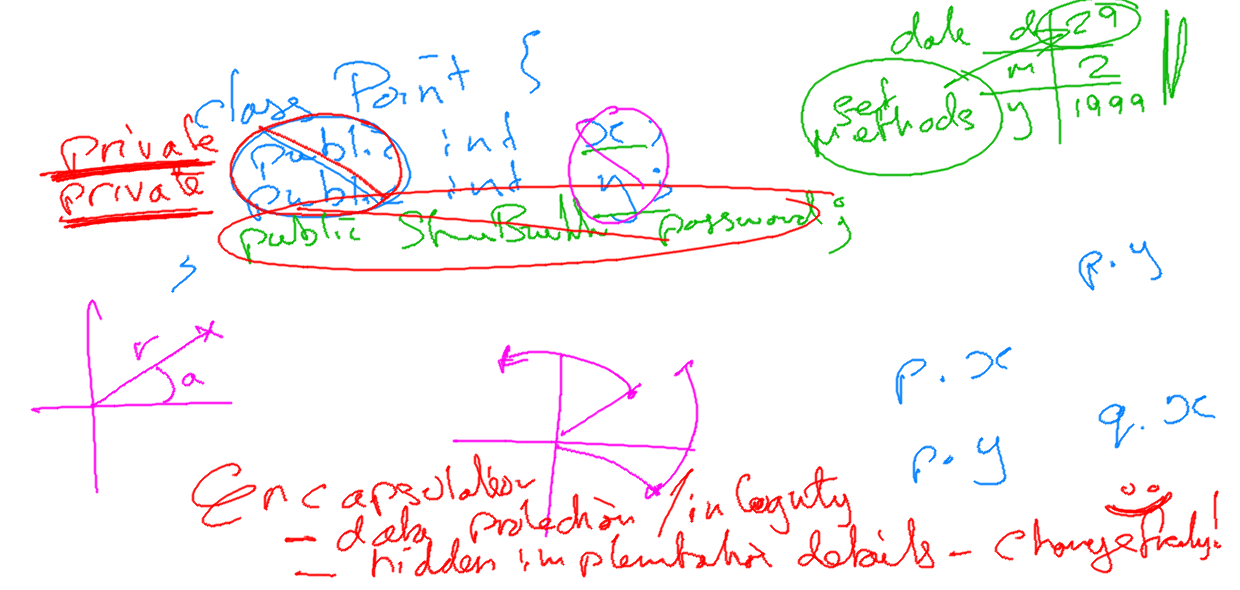 class Point {
private public int x;
private public int y;
public StringBuilder password;
}
date d 29
m 2
y 1999
set
methods
p.y
r
a
p.x
q.x
p.y
Encapsulation
- data protection / integrity
- hidden implementation details - change freely!